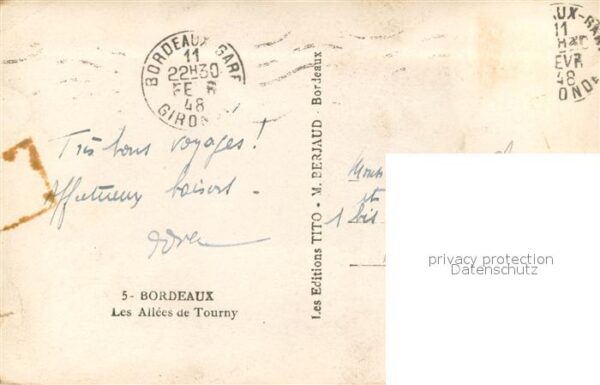 BORDEAUX-GARE
11
22H30
48
GIRON
11
48
OND
Très bons voyages !
Affectueux baisers.
5 - BORDEAUX
Les Allées de Tourny
Les Editions TITO - M. BERJAUD - Bordeaux
et
1 bis
privacy protection
Datenschutz